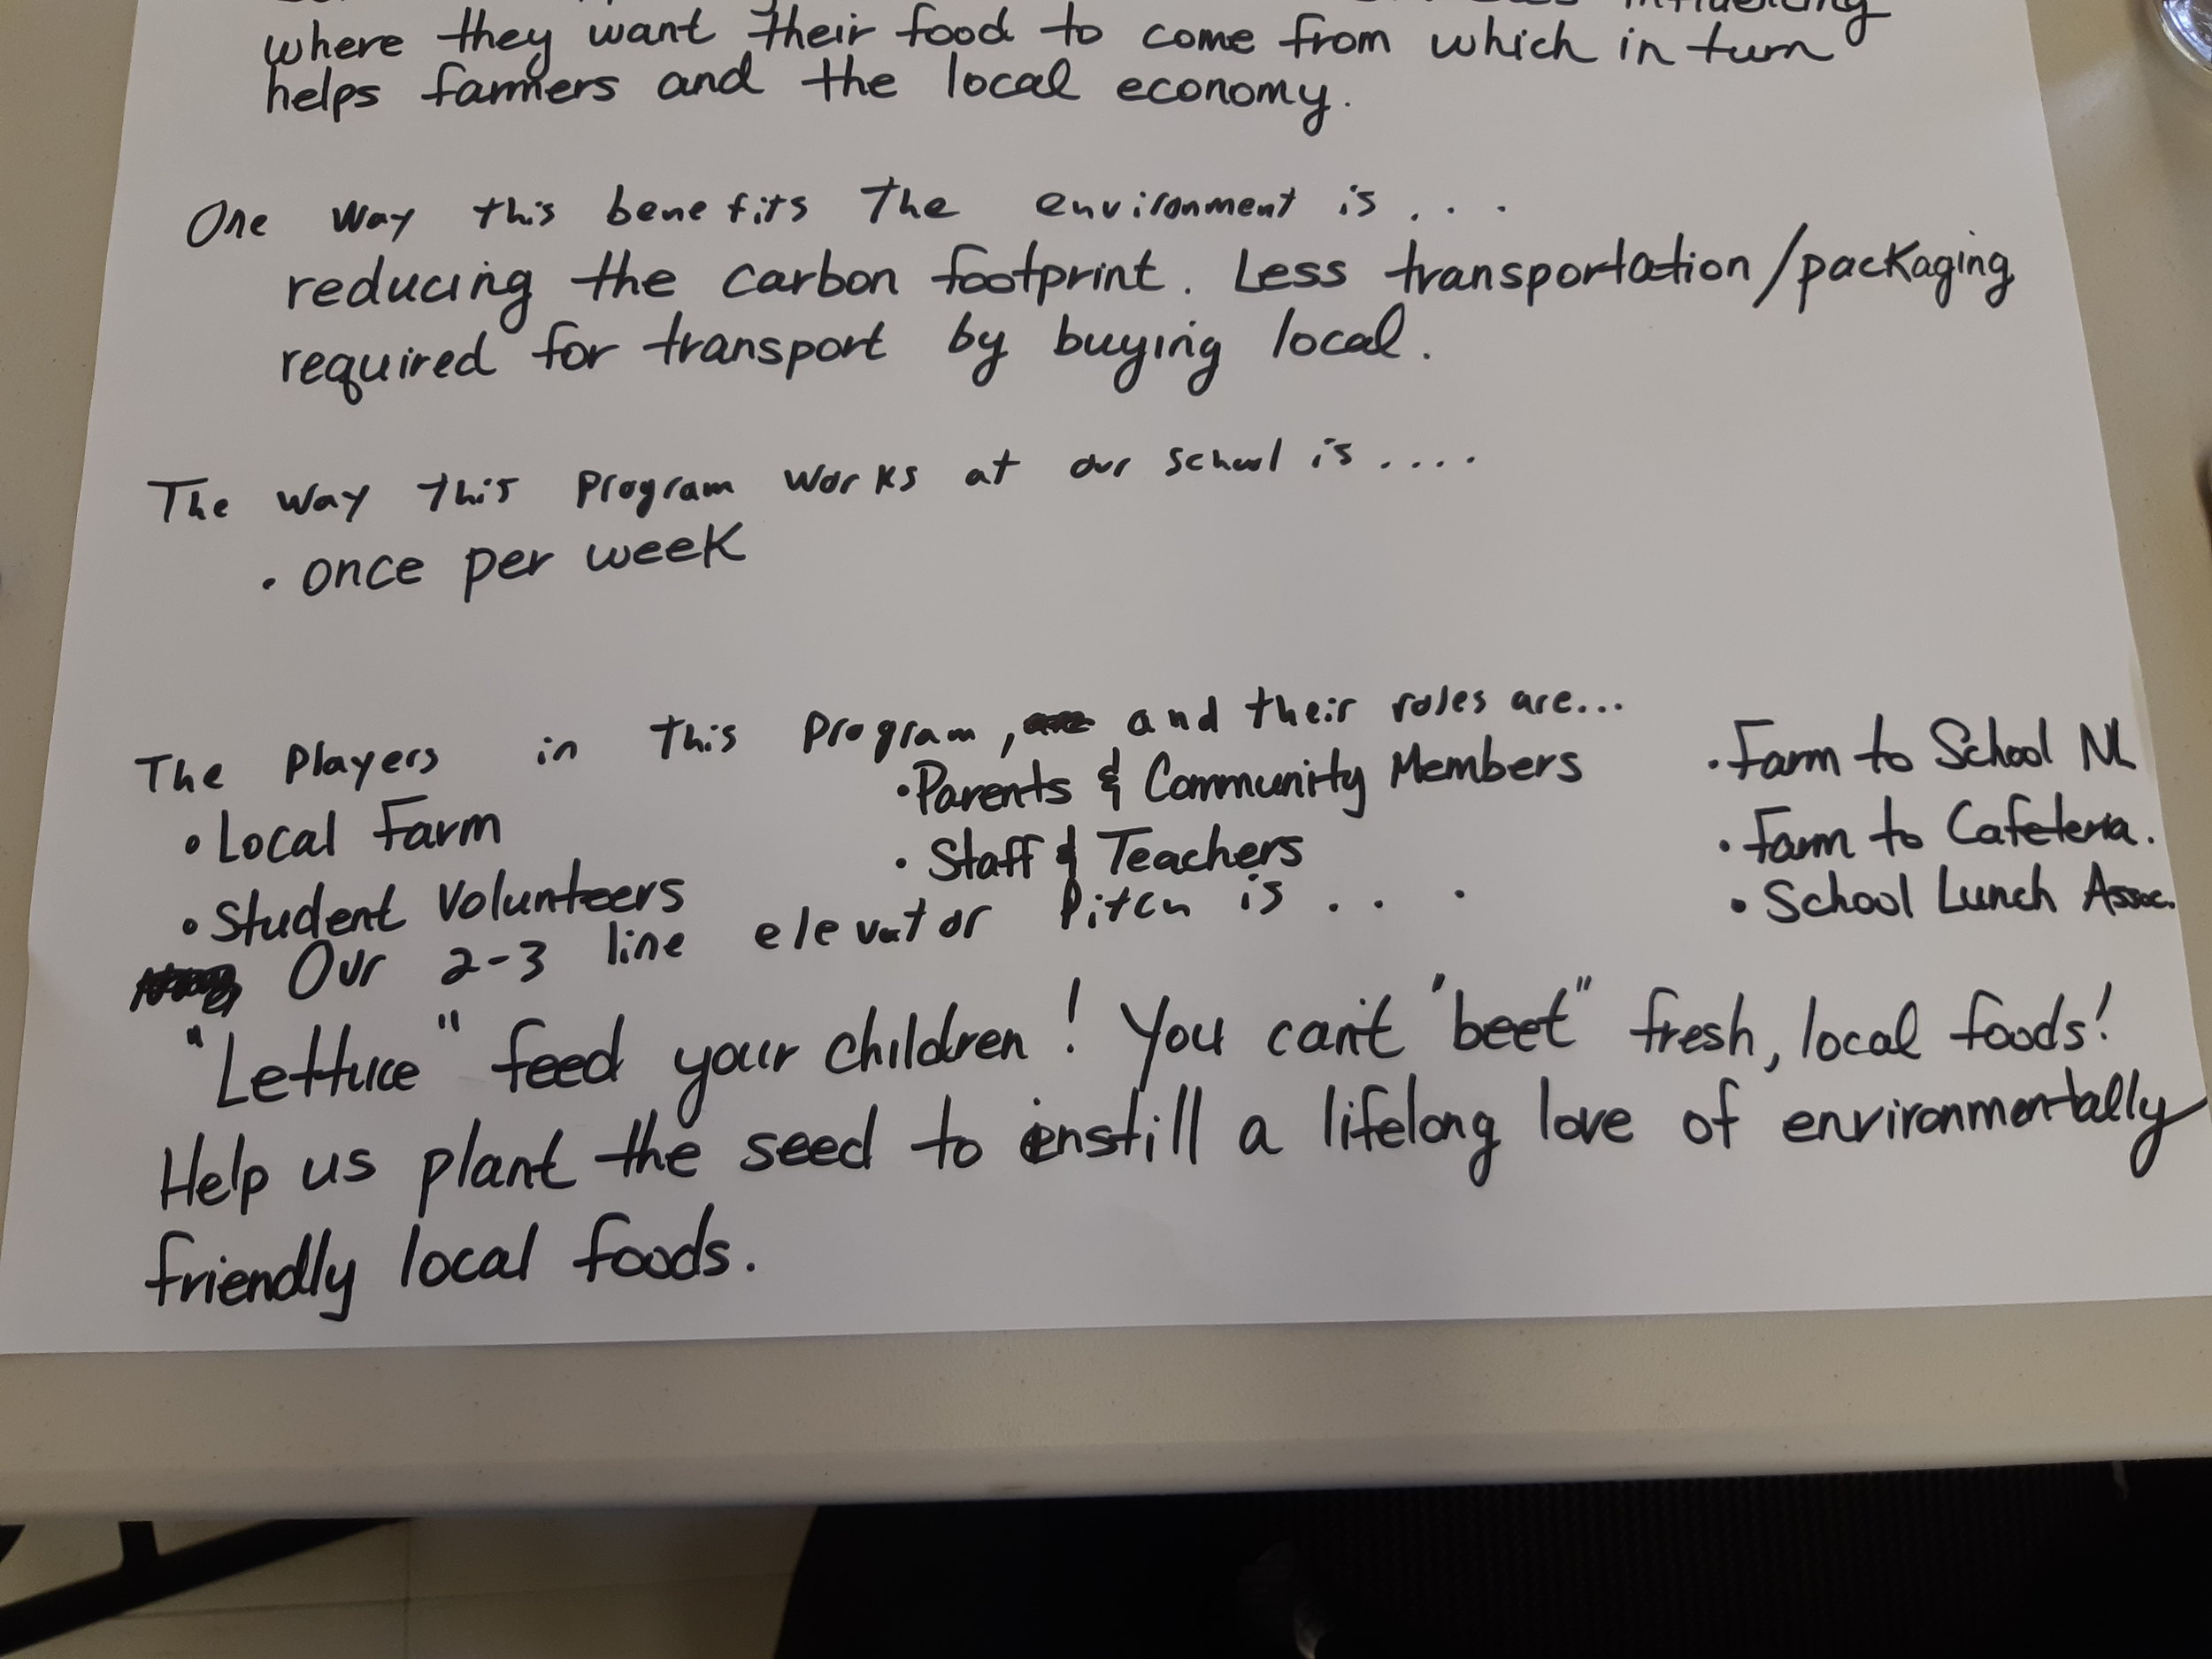 influencing
where they want their food to come from which in turn
helps farmers and the local economy.
One way this benefits The environment is . . .
reducing the carbon footprint. Less transportation/packaging
required for transport by buying local.
The way this Program works at our school is ....
• once per week
The Players in this Program, and their roles are...
• Local Farm
• Student Volunteers
• Parents & Community Members
• Staff & Teachers
• Farm to School NL
• Farm to Cafeteria.
• School Lunch Assoc.
Our 2-3 line elevator Pitch is . . .
"Lettuce" feed your children! You can't "beet" fresh, local foods!
Help us plant the seed to instill a lifelong love of environmentally
friendly local foods.